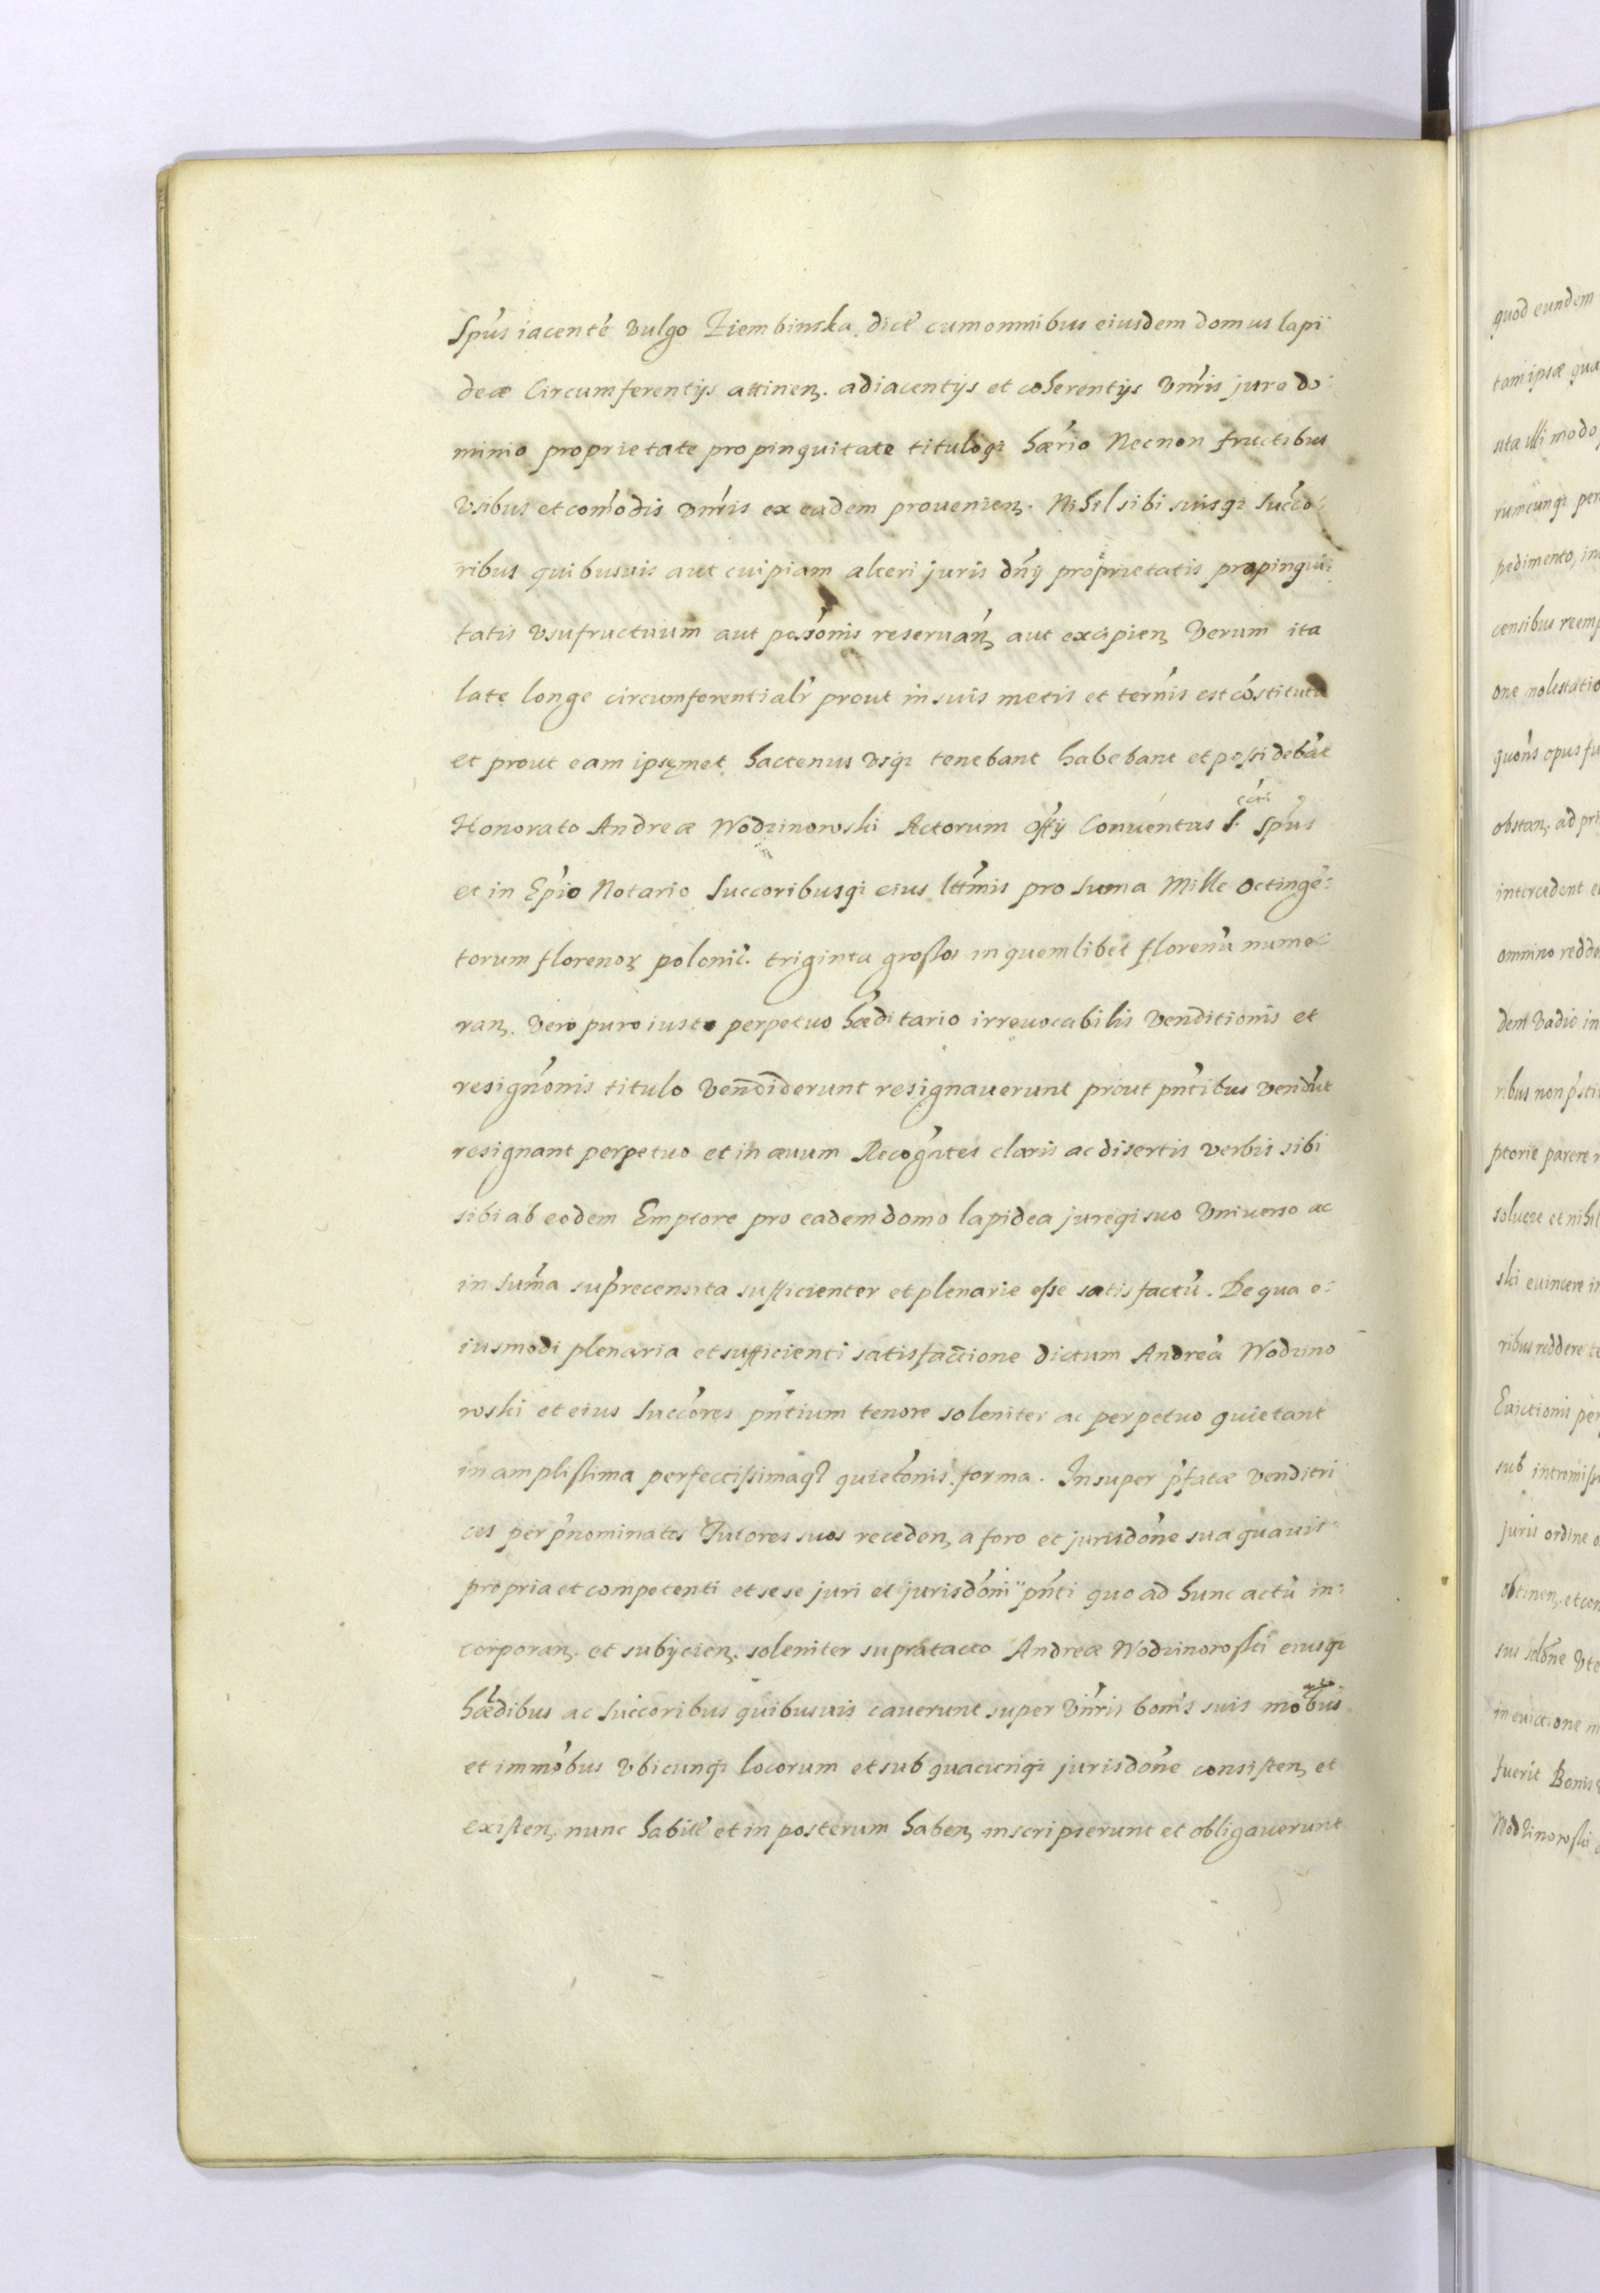 Spūs iacentē vulgo Ziembinska dictē cum omnibus eiusdem domus lapi
deæ Circumferentijs attinen. adiacentijs et coherentijs Vnīris jure do:
minio proprietate propinquitate tituloqȝ hærīo Necnon fructibus
Vsibus et com̄odis vnīris ex eadem provenien. Nihil sibi suisqȝ Succō:
ribus quibusvis aut cuipiam alteri juris dn̄ij proprietatis propinqui:
tatis Vsufructuum aut possōnis reservān aut excipien Verum ita
late longe circumferentialr̄ prout in suis metis et term̄is est cōstituta
et prout eam ipsęmet hactenus Vsqȝ tenebant habebant et possidebāt
Honorato Andreæ Wodzinowski Actorum offī̄j Conventus S. Spūs
et in Ep̄io Notario Succoribusqȝ eius lttīmis pro suma Mille octingē:
torum florenoꝝ polonic̄. triginta grossos in quemlibet florenū nume:
ran. Vero puro iusto perpetuo hæditario irrevocabilis Venditionis et
resignōnis titulo Vendiderunt resignaverunt prout pn̄tibus vendūt
resignant perpetuo et in ævum Recogn̄tes claris ac disertis verbis sibi
sibi ab eodem Emptore pro eadem domo lapidea jureqȝ suo Vniverso ac
in sum̄a sup̄recensita sufficienter et plenarie esse satisfactū. De qua e:
iusmodi plenaria et sufficienti satisfactione dictum Andreā Wodzino
wski et eius Succōres pn̄tium tenore soleniter ac perpetuo quietant
in amplissima perfectissimaqȝ quietōnis forma. Insuper p̄fatæ venditri
ces per p̄nominatos Tutores suos receden, a foro et jurisdōne sua quavis
propria et competenti et sese juri et jurisdōni pn̄ti quo ad hunc actū in:
corporan. et subijcien. soleniter supratacto Andreæ Wodzinowski eiusqȝ
hædibus ac succoribus quibusvis caverunt super Vnīris bonis suis mōbus
et immōbus Vbicunqȝ locorum et sub quacunqȝ jurisdōne consisten, et
existen, nunc habitē et in posterum haben, inscripserunt et obligaverunt
quod eundem
tam ipsæ qua
sita illi modo
rumcunqȝ per
pedimento, in
censibus reemp
one molestatio
quōns opus fu
obstan. ad pri
intercedent e
omnino redde
dem Vadio in
ribus non p̄sti
ptorie parere
soluere et nihil
ski evincere in
ribus reddere te
Evictionis per
sub intromiss
juris ordine o
obtinen. et con
sus solōne Vte
in evictione
fuerit Bonis
Wodzinowski